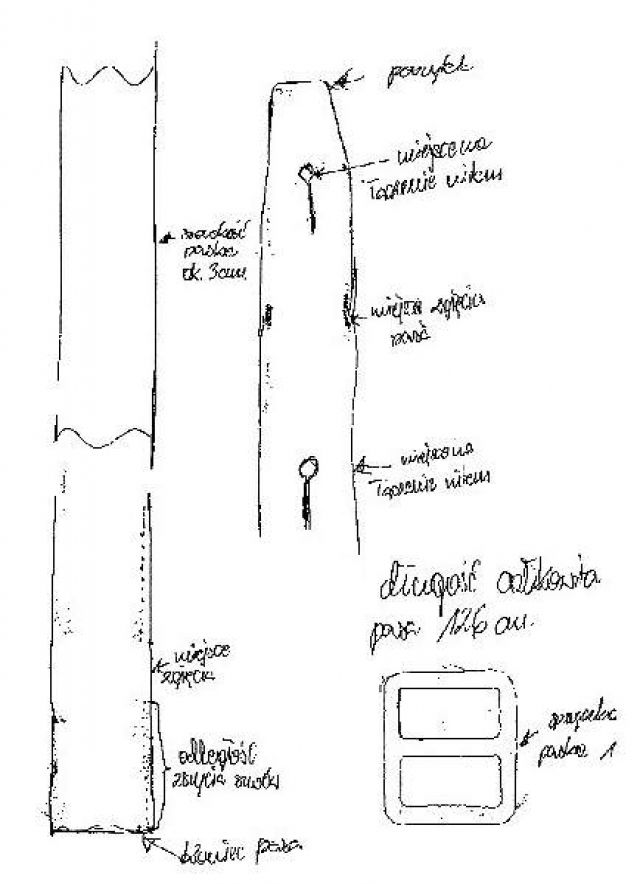 początek
miejsce na
łączenie nitem
szerokość
paska
ok. 3cm.
miejsce zgięcia
pasa
miejsce na
łączenie nitem
długość całkowita
pasa 126 cm.
miejsce
zgięcia
odległość
koniec pasa
paska 1